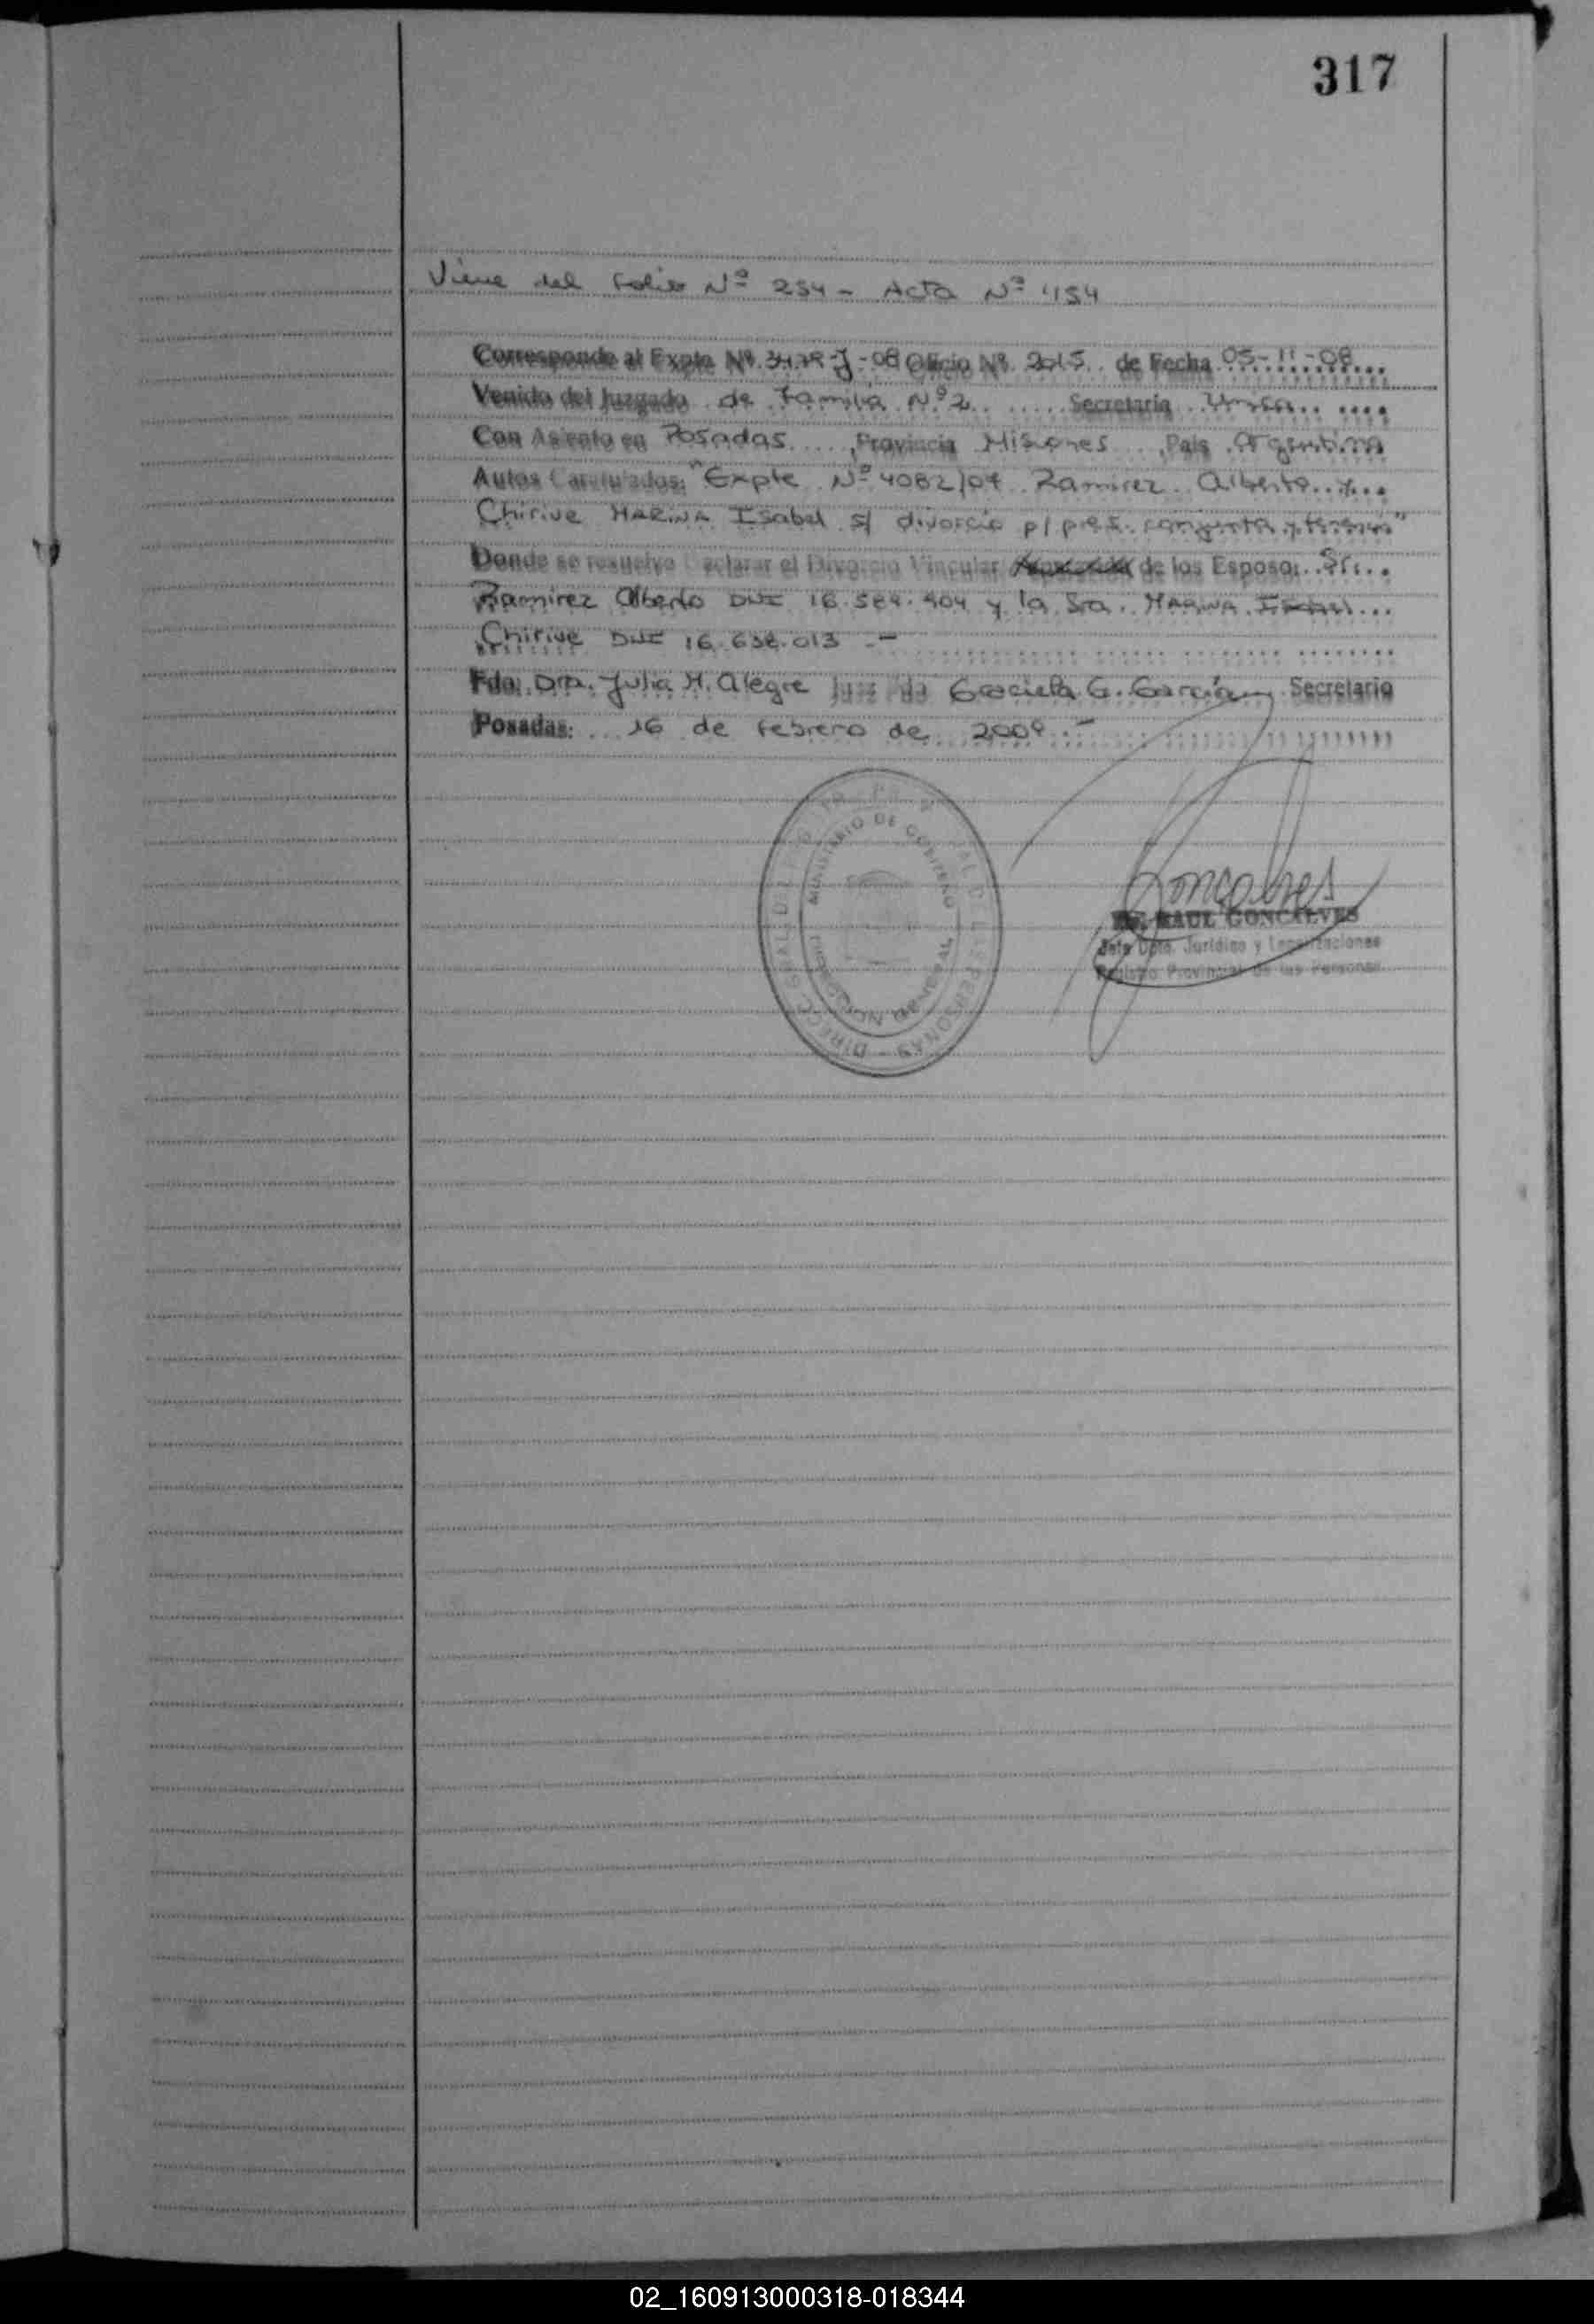 317
Viene del Folio Nº 254 - Acta Nº 454
Corresponde al Expte Nº. 3478-J-08 Oficio Nº. 2015.. de Fecha 05-11-08
Venido del Juzgado de Familia Nº 2 Secretaría Unica
Con Asiento en Posadas Provincia Misiones País Argentina
Autos Caratulados: "Expte Nº 4082/07 Ramirez Alberto y
Chirive MARINA Isabel s/ divorcio p/ pres. conjunta y"
Donde se resuelve Declarar el Divorcio Vincular de los Esposo: Sr.
Ramirez Alberto DNI 16.584.404 y la Sra. MARINA Isabel
Chirive DNI 16.638.013 -
Fdo: Dra. Julia H. Alegre Juez Graciela G. Garcia Secretario
Posadas: 16 de Febrero de 2009 -
DIRECC. GRAL. DEL PERSONAS
MINISTERIO DE GOBIERNO
DIRECCION GENERAL
Goncalves
RAUL GONCALVES
Jefe Dpto. Jurídico y Legalizaciones
Registro Provincial de las Personas
02_160913000318-018344